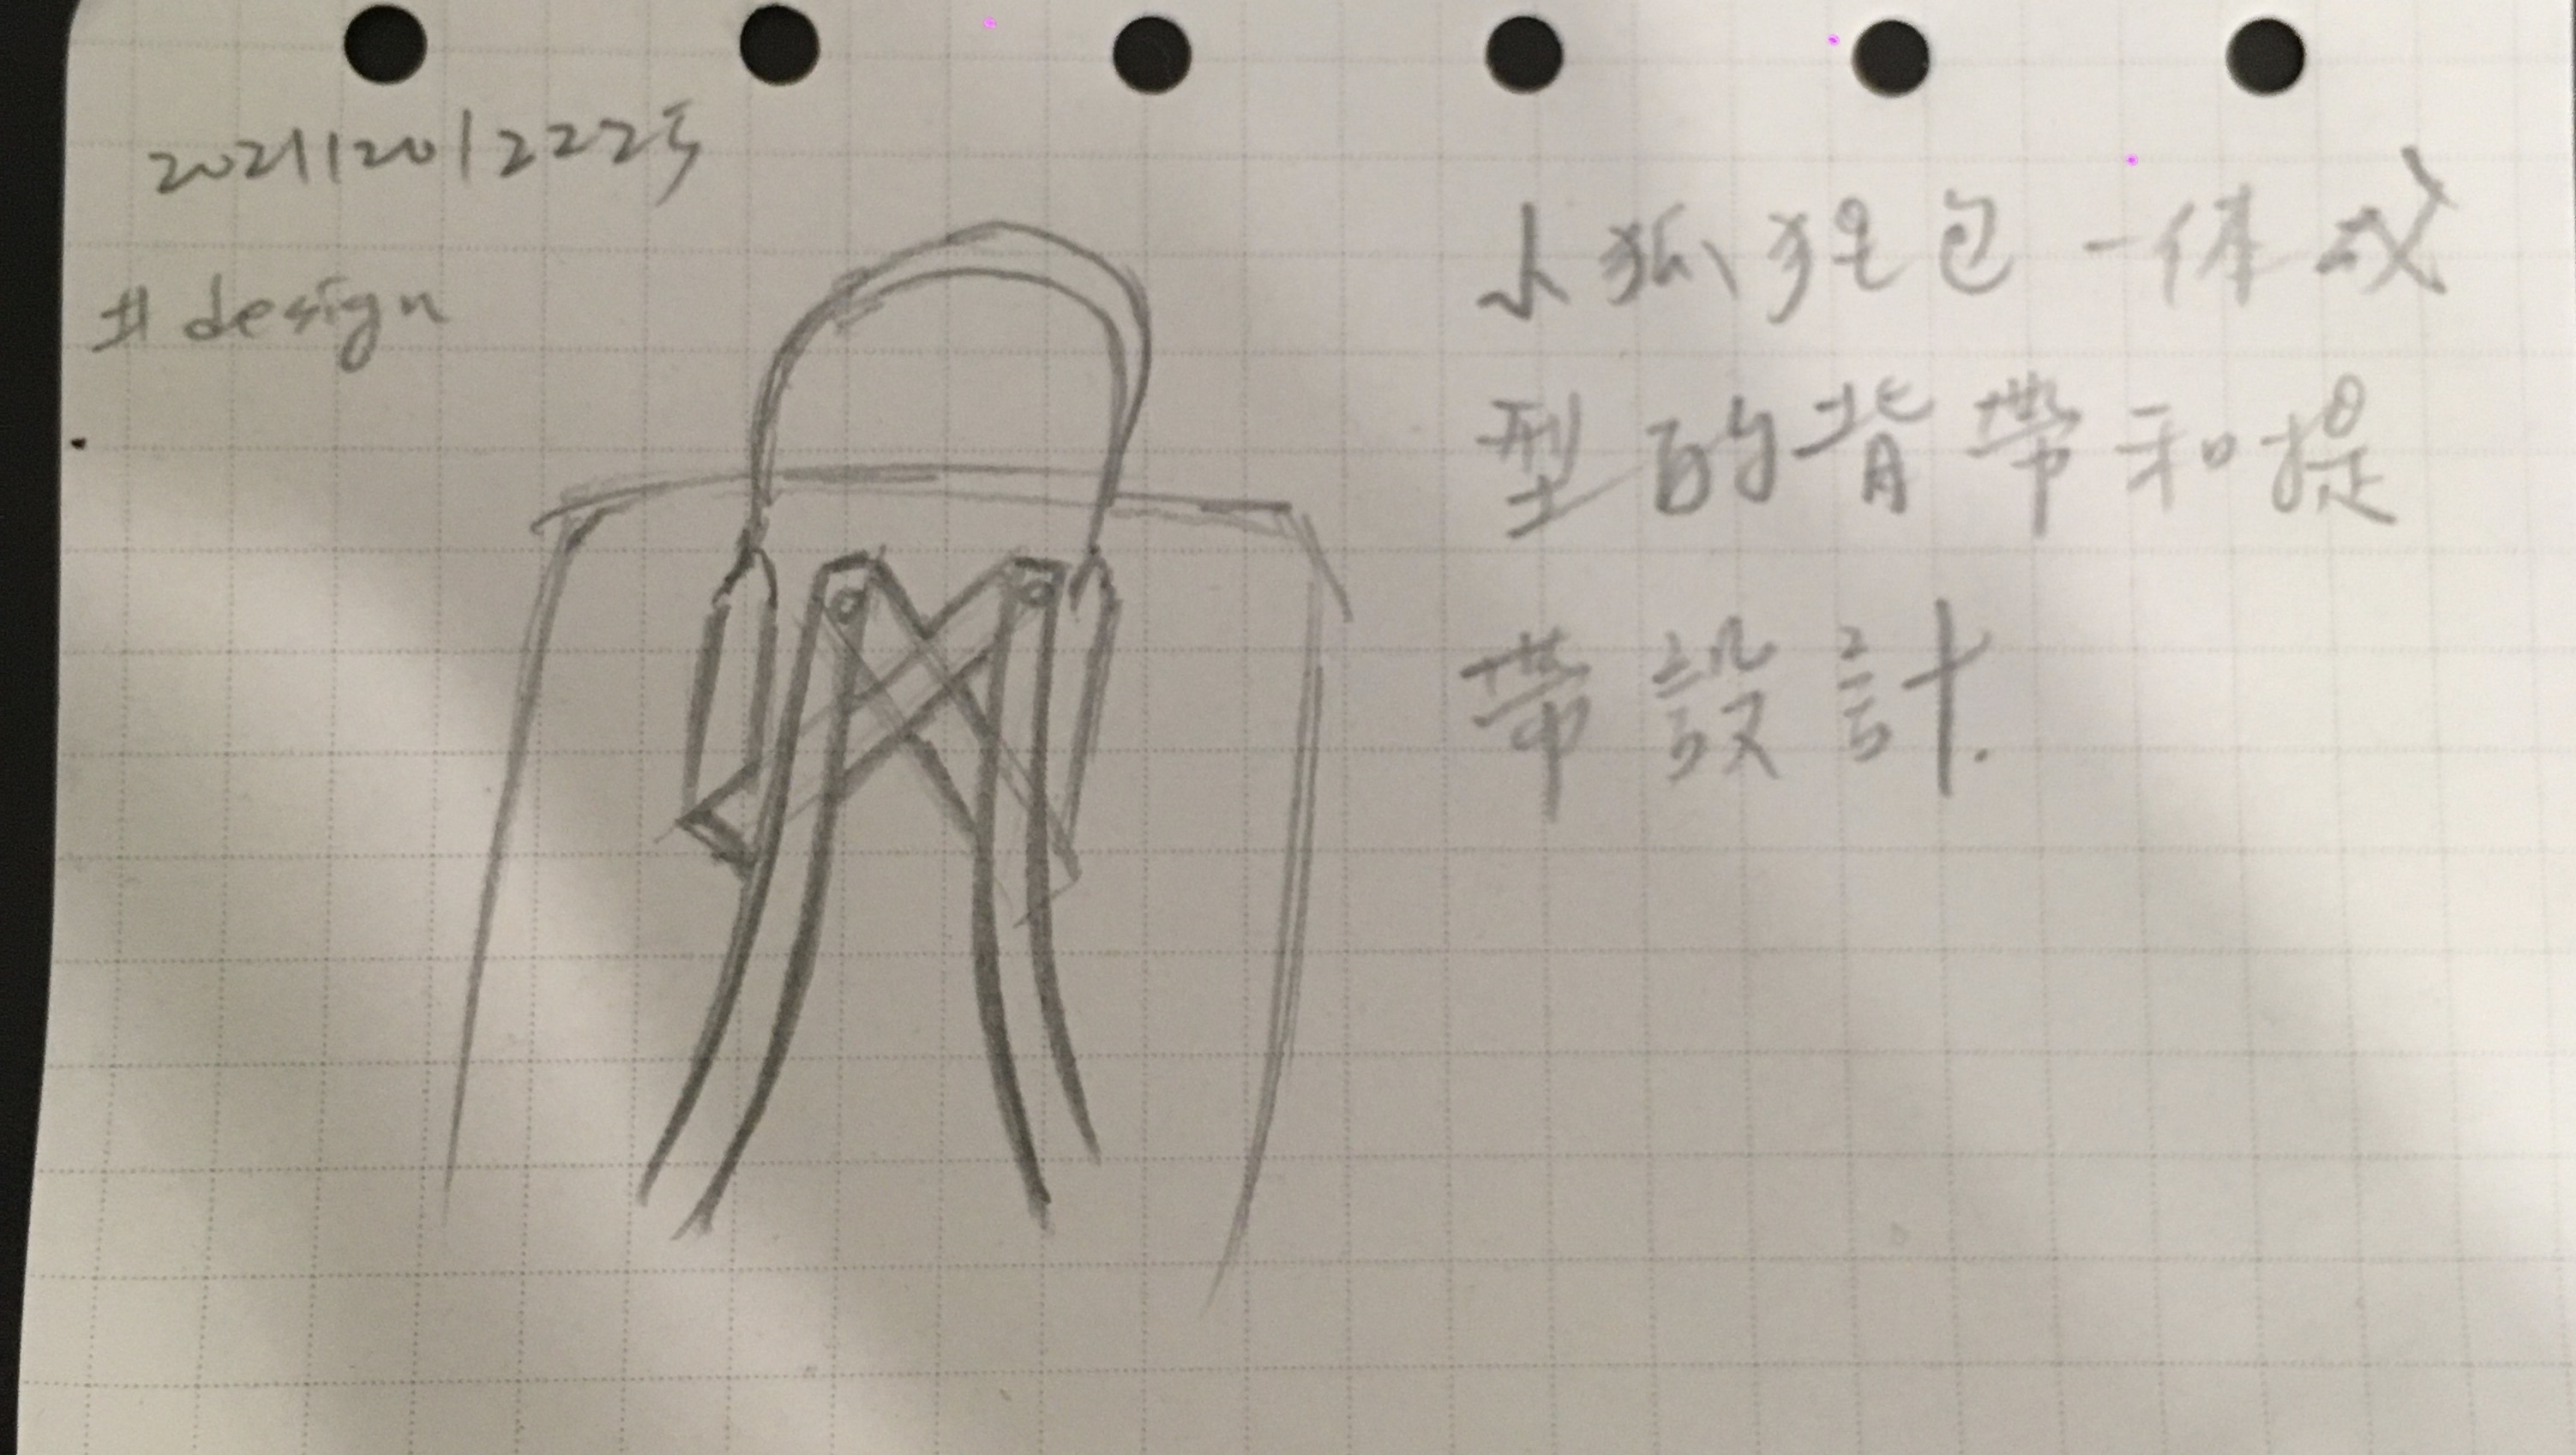 202112012225
#design
小狐狸包一体成
型的背帶和提
帶設計.